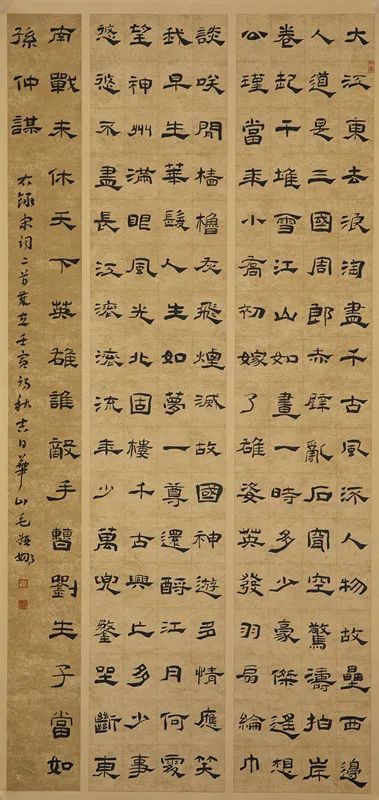 大江東去浪淘盡千古風流人物故壘西邊
人道是三國周郎赤壁亂石穿空驚濤拍岸
卷起千堆雪江山如畫一時多少豪傑遙想
公瑾當年小喬初嫁了雄姿英發羽扇綸巾
談咲間檣櫓灰飛煙滅故國神遊多情應笑
我早生華髮人生如夢一尊還酹江月何處
望神州滿眼風光北固樓千古興亡多少事
悠悠不盡長江滾滾流年少萬兜鍪坐斷東
南戰未休天下英雄誰敵手曹劉生子當如
孫仲謀
右錄宋詞二首歲在壬寅初秋吉日華山毛